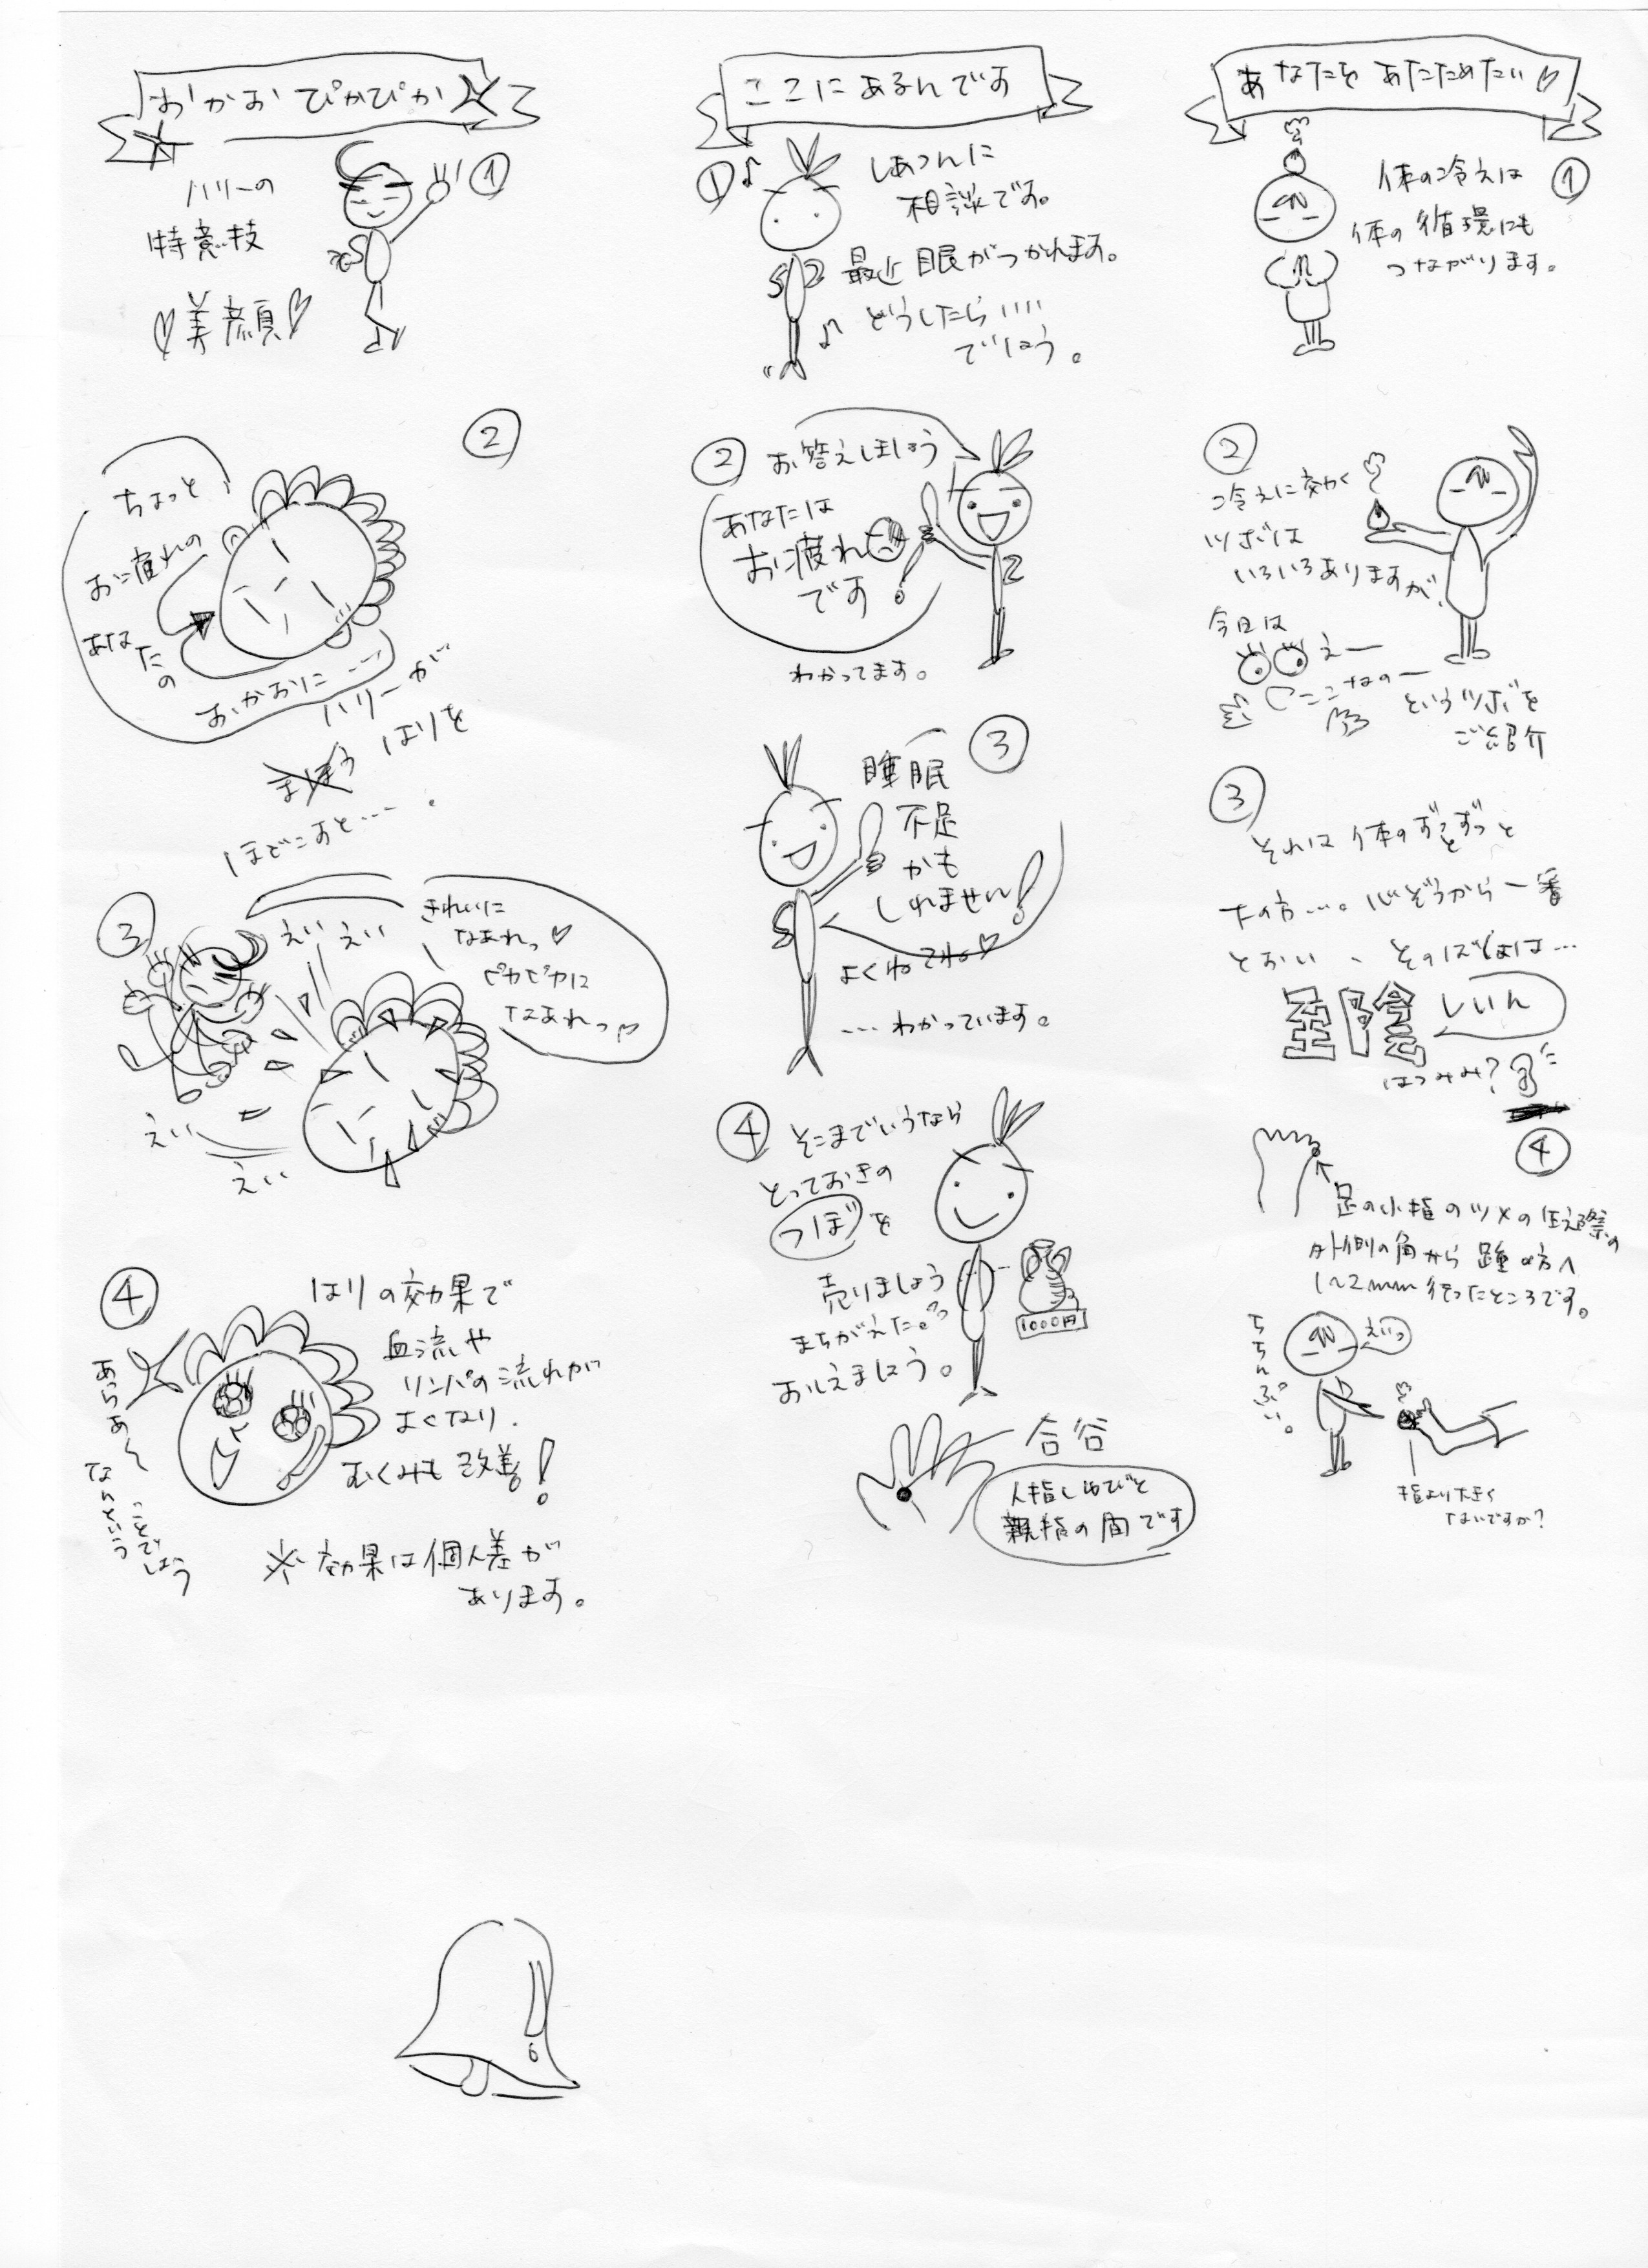 おかおぴかぴか
①
ハリーの
特意技
美顔
②
ちょっと
お疲れの
あなたの
おかおに…
ハリーが
まほう はりを
ほどこすと…。
③
えい えい
きれいに
なあれっ♡
ピカピカに
なあれっ♡
えい
えい
④
はりの効果で
血流や
リンパの流れが
よくなり、
むくみも改善!
あらあ〜
なんという
ことでしょう
※効果は個人差が
あります。
ここにあるんです
①
しあつんに
相談です。
最近眼がつかれます。
どうしたらいい
でしょう。
②
お答えしましょう
あなたは
お疲れ
です!
わかってます。
③
睡眠
不足
かも
しれません!
よくねてね♡
…わかっています。
④
そこまでいうなら
とっておきの
つぼを
売りましょう
まちがえた。
おしえましょう。
1000円
合谷
人指しゆびと
親指の間です
あなたをあたためたい♡
①
体の冷えは
体の循環にも
つながります。
②
冷えに効く
ツボは
いろいろありますが、
今日は
えー
ここなのー
というツボを
ご紹介
③
それは体のずっとずっと
下の方…。心ぞうから一番
とおい、そのばしょは…
至陰
しいん
はつみみ?
④
足の小指のツメの生え際の
外側の角から踵の方へ
1~2mm行ったところです。
ちちんぷい。
えいっ
指より大きく
ないですか?